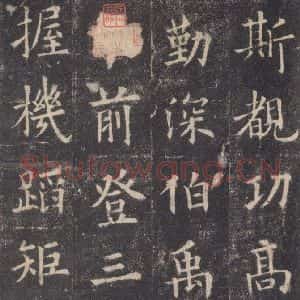 斯覩功高
勤深伯禹
前登三
握機蹈矩
Shufawang.CN